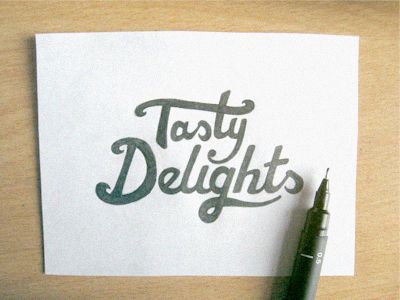 Tasty
Delights
0.5